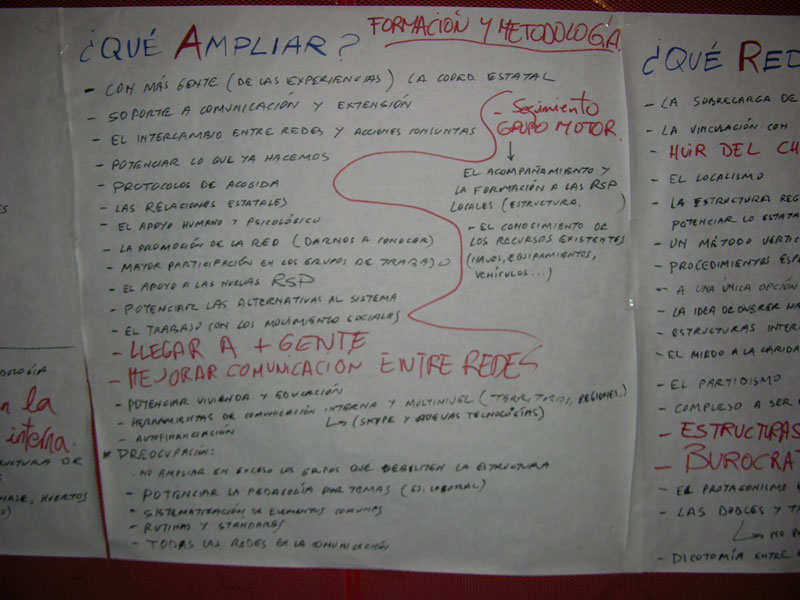 FORMACIÓN Y METODOLOGIA
¿QUÉ AMPLIAR?
- CON MÁS GENTE (DE LAS EXPERIENCIAS) LA COORD ESTATAL
- SOPORTE A COMUNICACIÓN Y EXTENSIÓN
- EL INTERCAMBIO ENTRE REDES Y ACCIONES CONJUNTAS
- POTENCIAR LO QUE YA HACEMOS
- PROTOCOLOS DE ACOGIDA
- LAS RELACIONES ESTATALES
- EL APOYO HUMANO Y PSICOLÓGICO
- LA PROMOCIÓN DE LA RED (DARNOS A CONOCER)
- MAYOR PARTICIPACIÓN EN LOS GRUPOS DE TRABAJO
- EL APOYO A LAS NUEVAS RSP
- POTENCIAR LAS ALTERNATIVAS AL SISTEMA
- EL TRABAJO CON LOS MOVIMIENTO SOCIALES
- LLEGAR A + GENTE
- MEJORAR COMUNICACIÓN ENTRE REDES
- POTENCIAR VIVIENDA Y EDUCACIÓN
- HERRAMIENTAS DE COMUNICACIÓN INTERNA Y MULTINIVEL (TERRITORIOS, REGIONES..)
(SKYPE Y NUEVAS TECNOLOGÍAS)
- AUTOFINANCIACIÓN
* PREOCUPACIÓN:
. NO AMPLIAR EN EXCESO LOS GRUPOS QUE DEBILITEN LA ESTRUCTURA
- POTENCIAR LA PEDAGOGÍA POR TEMAS (EJ. LABORAL)
- SISTEMATIZACIÓN DE ELEMENTOS COMUNES
- RUTINAS Y STANDARES
- TODAS LAS REDES EN LA COMUNICACIÓN
- Seguimiento
GRUPO MOTOR.
EL ACOMPAÑAMIENTO Y
LA FORMACIÓN A LAS RSP
LOCALES (ESTRUCTURA, )
- EL CONOCIMIENTO DE
LOS RECURSOS EXISTENTES
(NAVES, EQUIPAMIENTOS,
VEHÍCULOS...)
¿QUÉ RED
- LA SOBRECARGA DE
- LA VINCULACIÓN CON
- HUIR DEL CH
- EL LOCALISMO
- LA ESTRUCTURA REG
POTENCIAR LO ESTATA
- UN MÉTODO VERTIC
- PROCEDIMIENTOS ESP
- A UNA ÚNICA OPCIÓN
- LA IDEA DE QUERER HA
- ESTRUCTURAS INTER
- EL MIEDO A LA CARIDA
- EL PARTIDISMO
- COMPLEJO A SER
- ESTRUCTURAS
- BUROCRAT
- EL PROTAGONISMO
- LAS DOBLES Y T
NO PO
- DICOTOMÍA ENTRE
ODOLOGÍA
la
interna.
UCTURA DE
HUERTOS